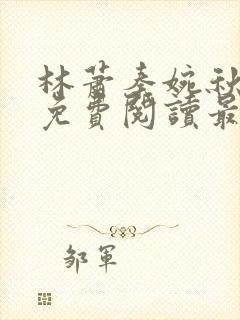 林蕭秦婉秋
免費閱讀最
鄒軍